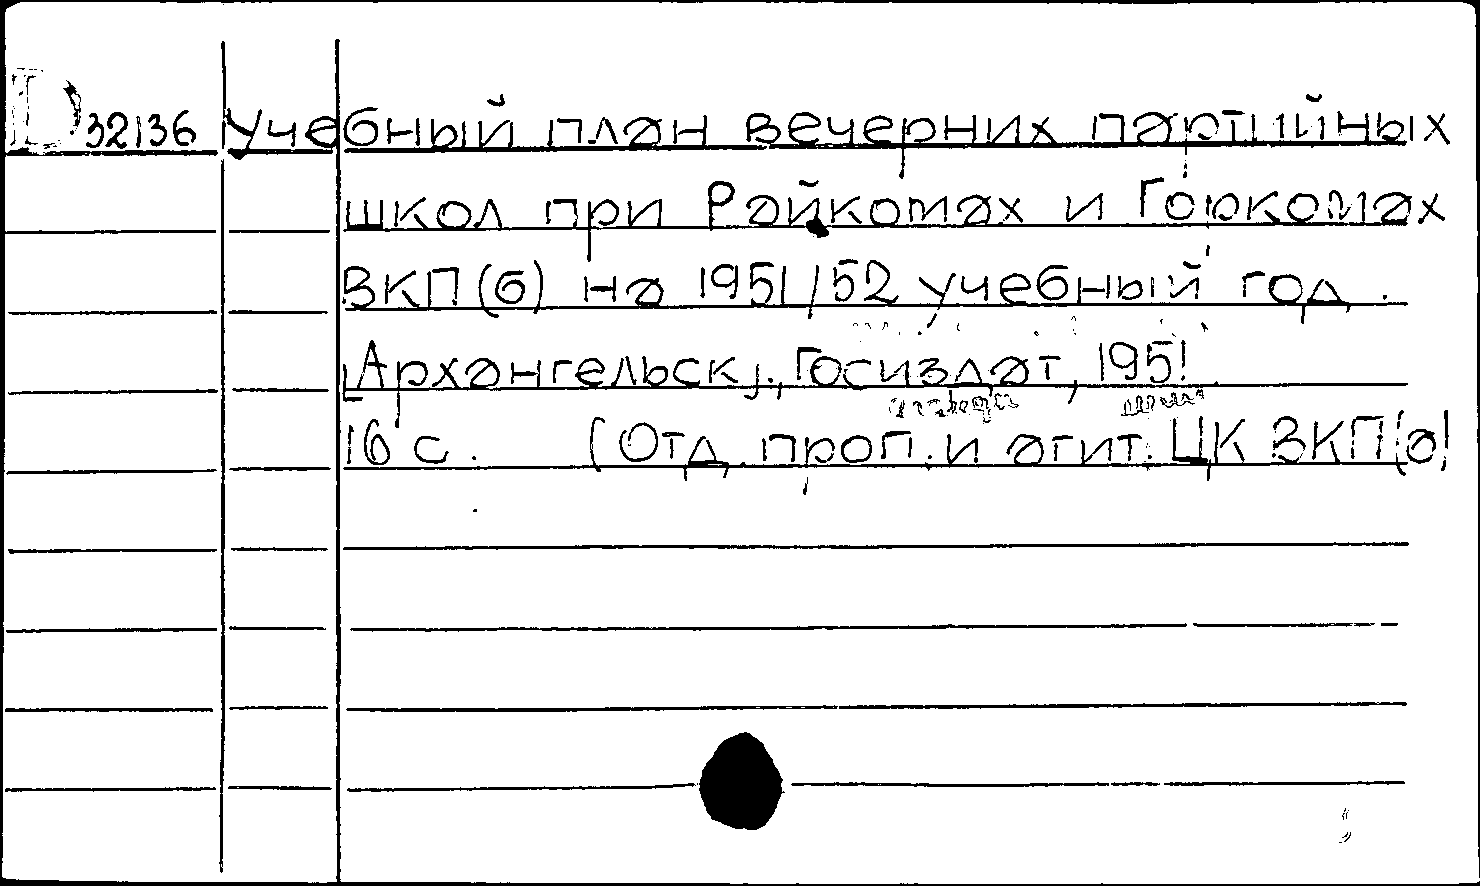 D 32136 Учебный план вечерних партийных
школ при Райкомах и Горкомах
ВКП(б) на 1951/52 учебный год.
[Архангельск]., Госиздат, 1951.
16 с. (Отд. проп. и агит. ЦК ВКП(б)